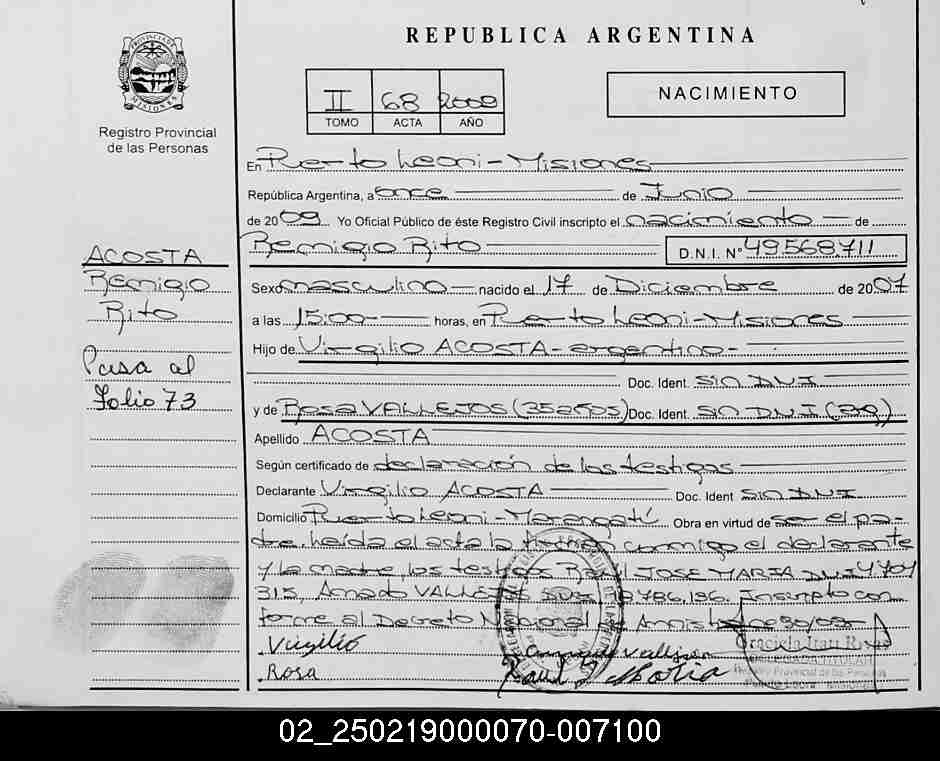 REPUBLICA ARGENTINA
PROVINCIA DE MISIONES
Registro Provincial
de las Personas
II 68 2009
TOMO ACTA AÑO
NACIMIENTO
En Puerto Leoni - Misiones
República Argentina, a once de Junio
de 2009 Yo Oficial Público de éste Registro Civil inscripto el nacimiento de
Remigio Rito D.N.I. N° 49568711
ACOSTA
Remigio
Rito
Pasa al
folio 73
Sexo masculino nacido el 17 de Diciembre de 2007
a las 15:00 horas, en Puerto Leoni - Misiones
Hijo de Virgilio ACOSTA - argentino -
Doc. Ident. SIN DNI
y de Rosa VALLEJOS (352505) Doc. Ident. SIN DNI (ag)
Apellido ACOSTA
Según certificado de declaración de los testigos
Declarante Virgilio ACOSTA Doc. Ident SIN DNI
Domicilio Puerto Leoni - Marangatú Obra en virtud de ser el pa-
dre, leída el acta la firman conmigo el declarante
y la madre, los testigos JOSE MARIA DNI 4704
315, Amado VALLEJOS DNI 786.196. Inscripto con
forme al Decreto Nacional de Amnistía n° 90/09
Virgilio
Rosa
Graciela Itatí Rivas
DELEGADA TITULAR
Registro Provincial de las Personas
Puerto Leoni - Misiones
02_250219000070-007100